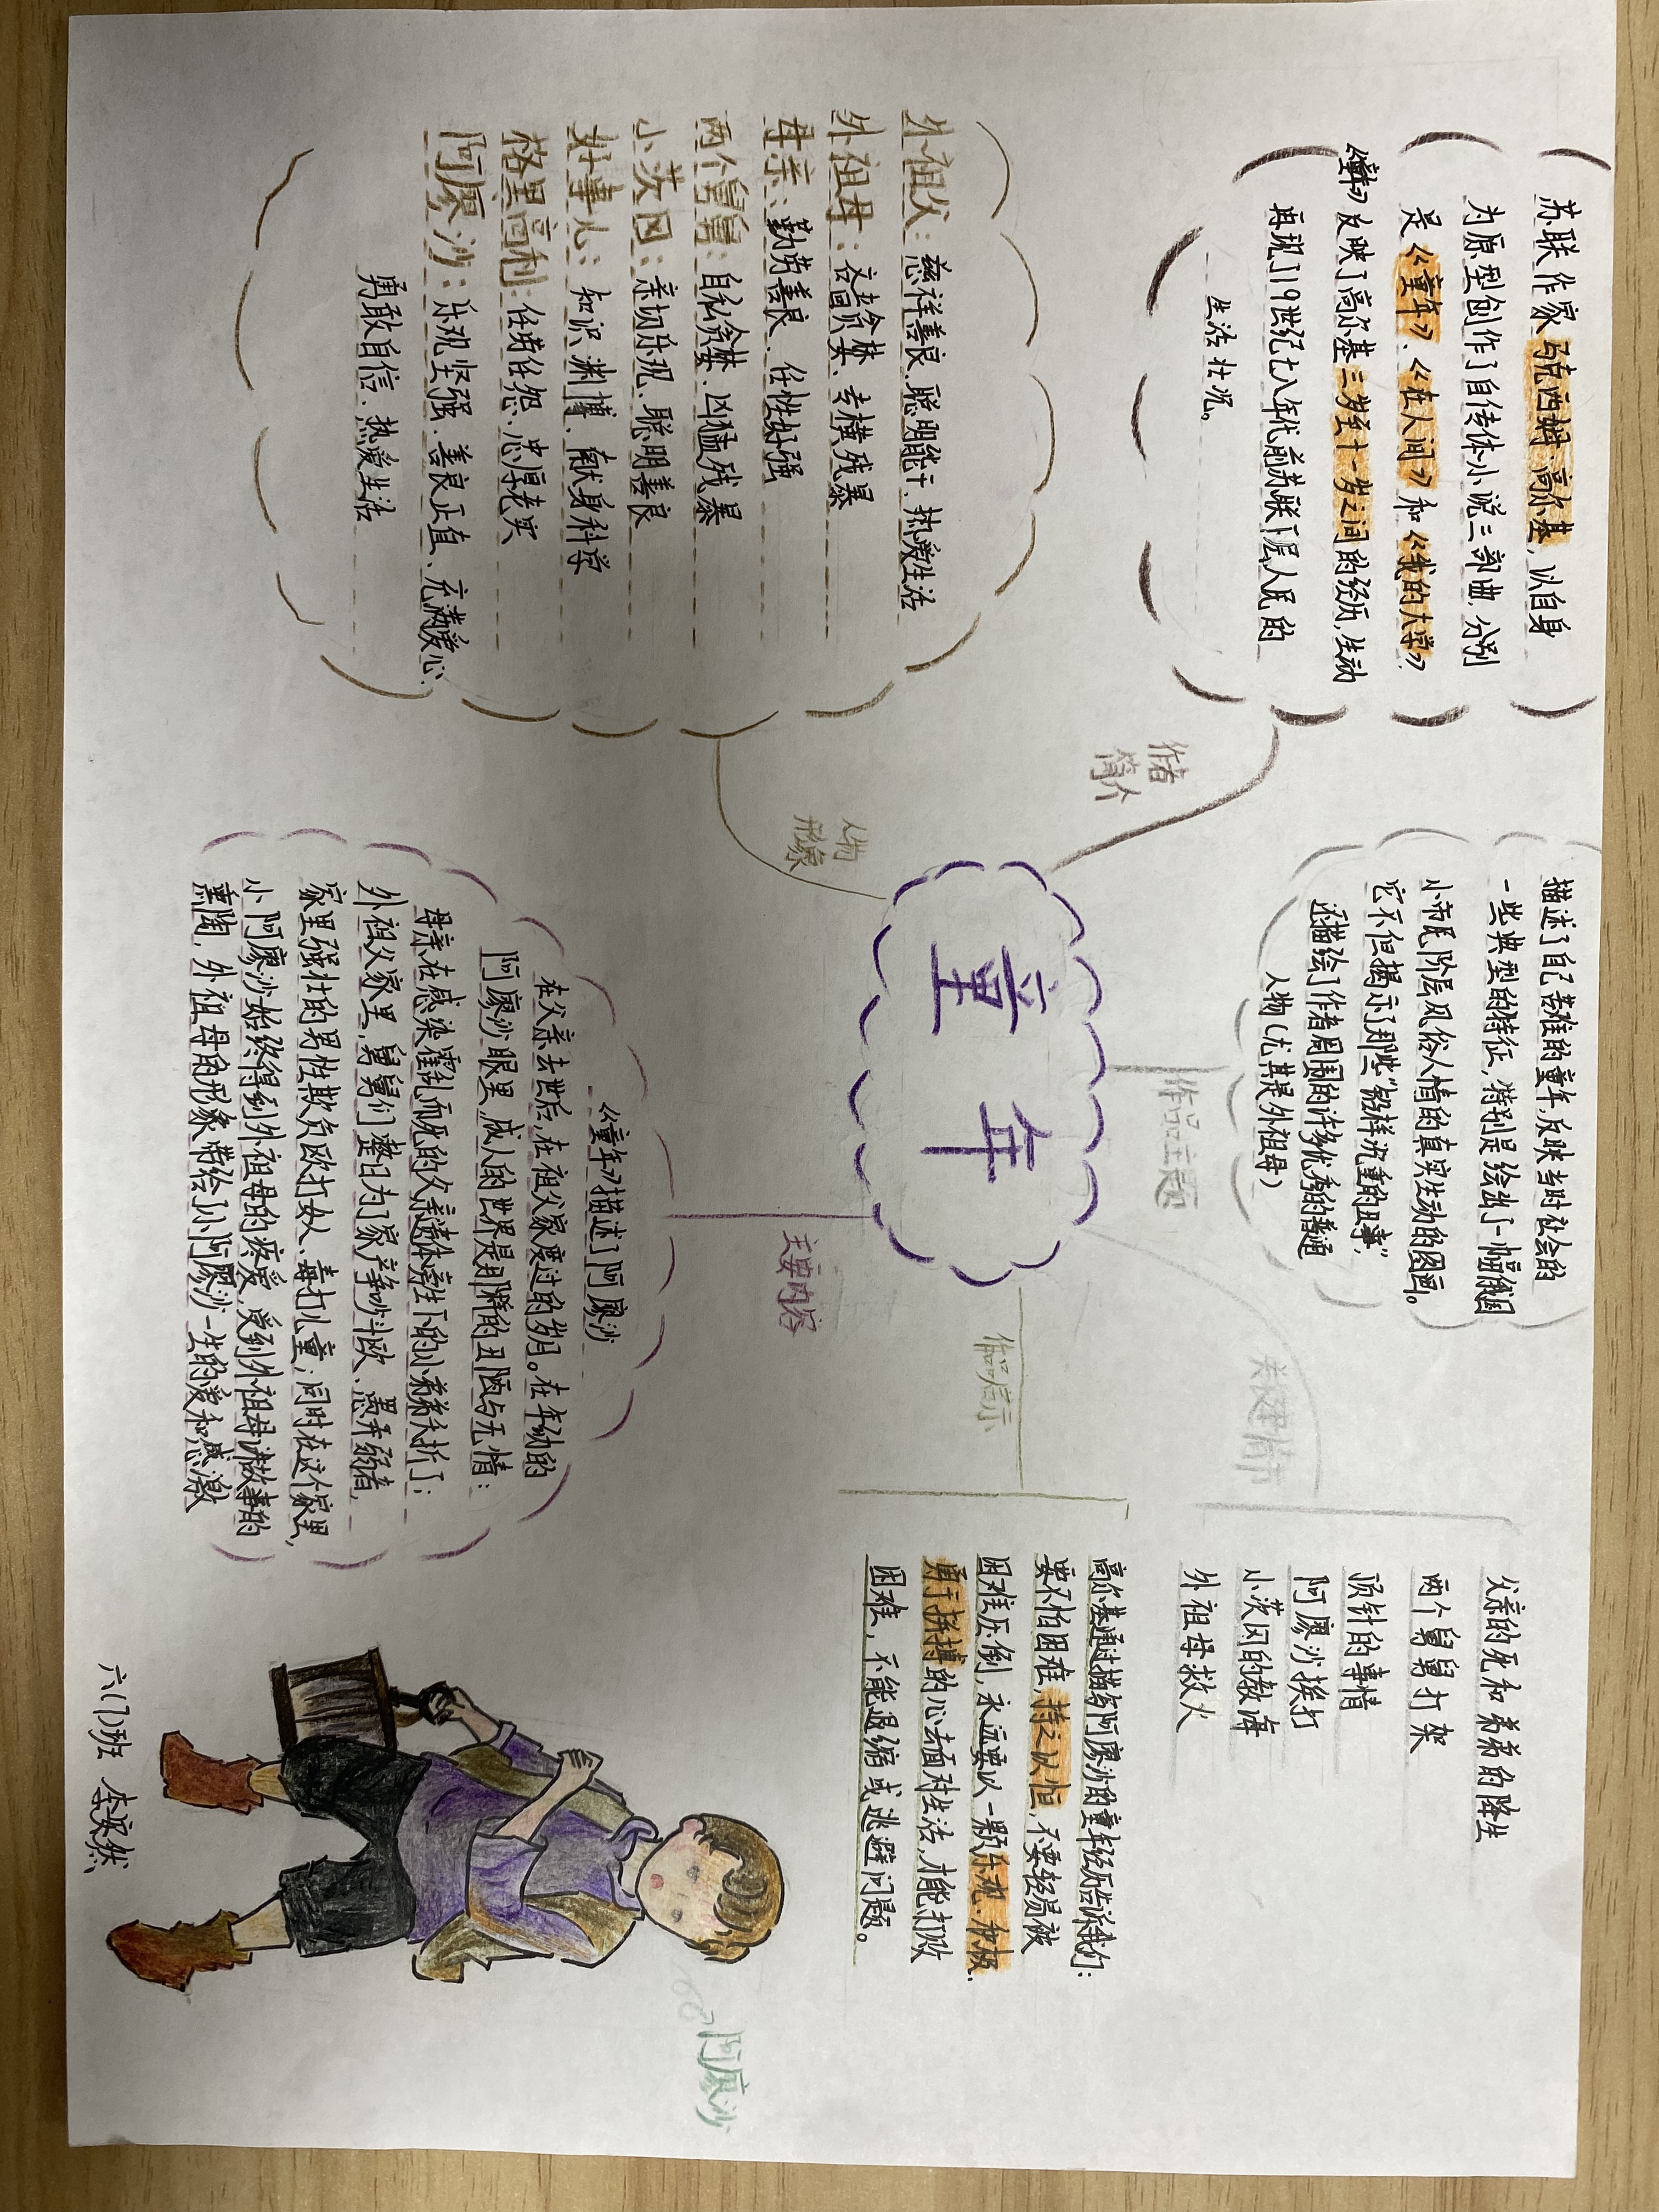 童年
作者
简介
苏联作家马克西姆·高尔基,以自身
为原型创作了自传体小说三部曲,分别
是《童年》、《在人间》和《我的大学》.
《童年》反映了高尔基三岁至十一岁之间的经历,生动
再现了19世纪七八年代前苏联下层人民的
生活壮况。
作品主题
描述了自己苦难的童年,反映当时社会的
一些典型的特征,特别是绘出了一幅俄国
小市民阶层风俗人情的真实生动的图画。
它不但揭示了那些“铅样沉重的丑事”,
还描绘了作者周围的许多优秀的普通
人物(尤其是外祖母)
关键情节
父亲的死和弟弟的降生
两个舅舅打架
顶针的事情
阿廖沙挨打
小茨冈的教海
外祖母救火
作品启示
高尔基通过描写阿廖沙的童年经历告诉我们:
要不怕困难,持之以恒,不要轻易被
困难压倒,永远要以一颗乐观、积极、
勇于拼搏的心去面对生活,才能打败
困难,不能退缩或逃避问题。
人物
形象
外祖父:慈祥善良、聪明能干、热爱生活
外祖母:吝啬贪婪、专横残暴
母亲:勤劳善良、任性好强
两个舅舅:自私贪婪、凶猛残暴
小茨冈:亲切乐观、聪明善良
好事人:知识渊博、献身科学
格里高利:任劳任怨、忠厚老实
阿廖沙:乐观坚强、善良正直、充满爱心.
勇敢自信、热爱生活
主要内容
《童年》描述了阿廖沙
在父亲去世后,在祖父家度过的岁月。在年幼的
阿廖沙眼里,成人的世界是肮脏的丑陋与无情:
母亲在感染霍乱而死的父亲遗体旁生下的小弟弟夭折了;
外祖父家里,舅舅们整日为了家产争吵斗殴、愚弄弱者,
家里强壮的男性欺负欧打女人、毒打儿童;同时在这个家里,
小阿廖沙始终得到外祖母的疼爱,受到外祖母讲故事的
熏陶,外祖母的形象带给了小阿廖沙一生的爱和感激
阿廖沙
六(1)班 李安然